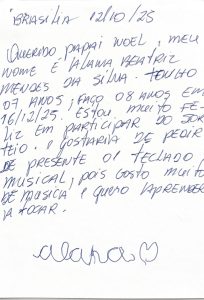 BRASÍLIA 12/10/25
QUERIDO PAPAI NOEL, MEU
NOME É ALANA BEATRIZ
MENDES DA SILVA. TENHO
07 ANOS, FAÇO 08 ANOS EM
16/12/25. ESTOU MUITO FE-
LIZ EM PARTICIPAR DO SOR
TEIO. E GOSTARIA DE PEDIR
DE PRESENTE 01 TECLADO
MUSICAL, POIS GOSTO MUITO
DE MÚSICA E QUERO APRENDER
A TOCAR.
alana